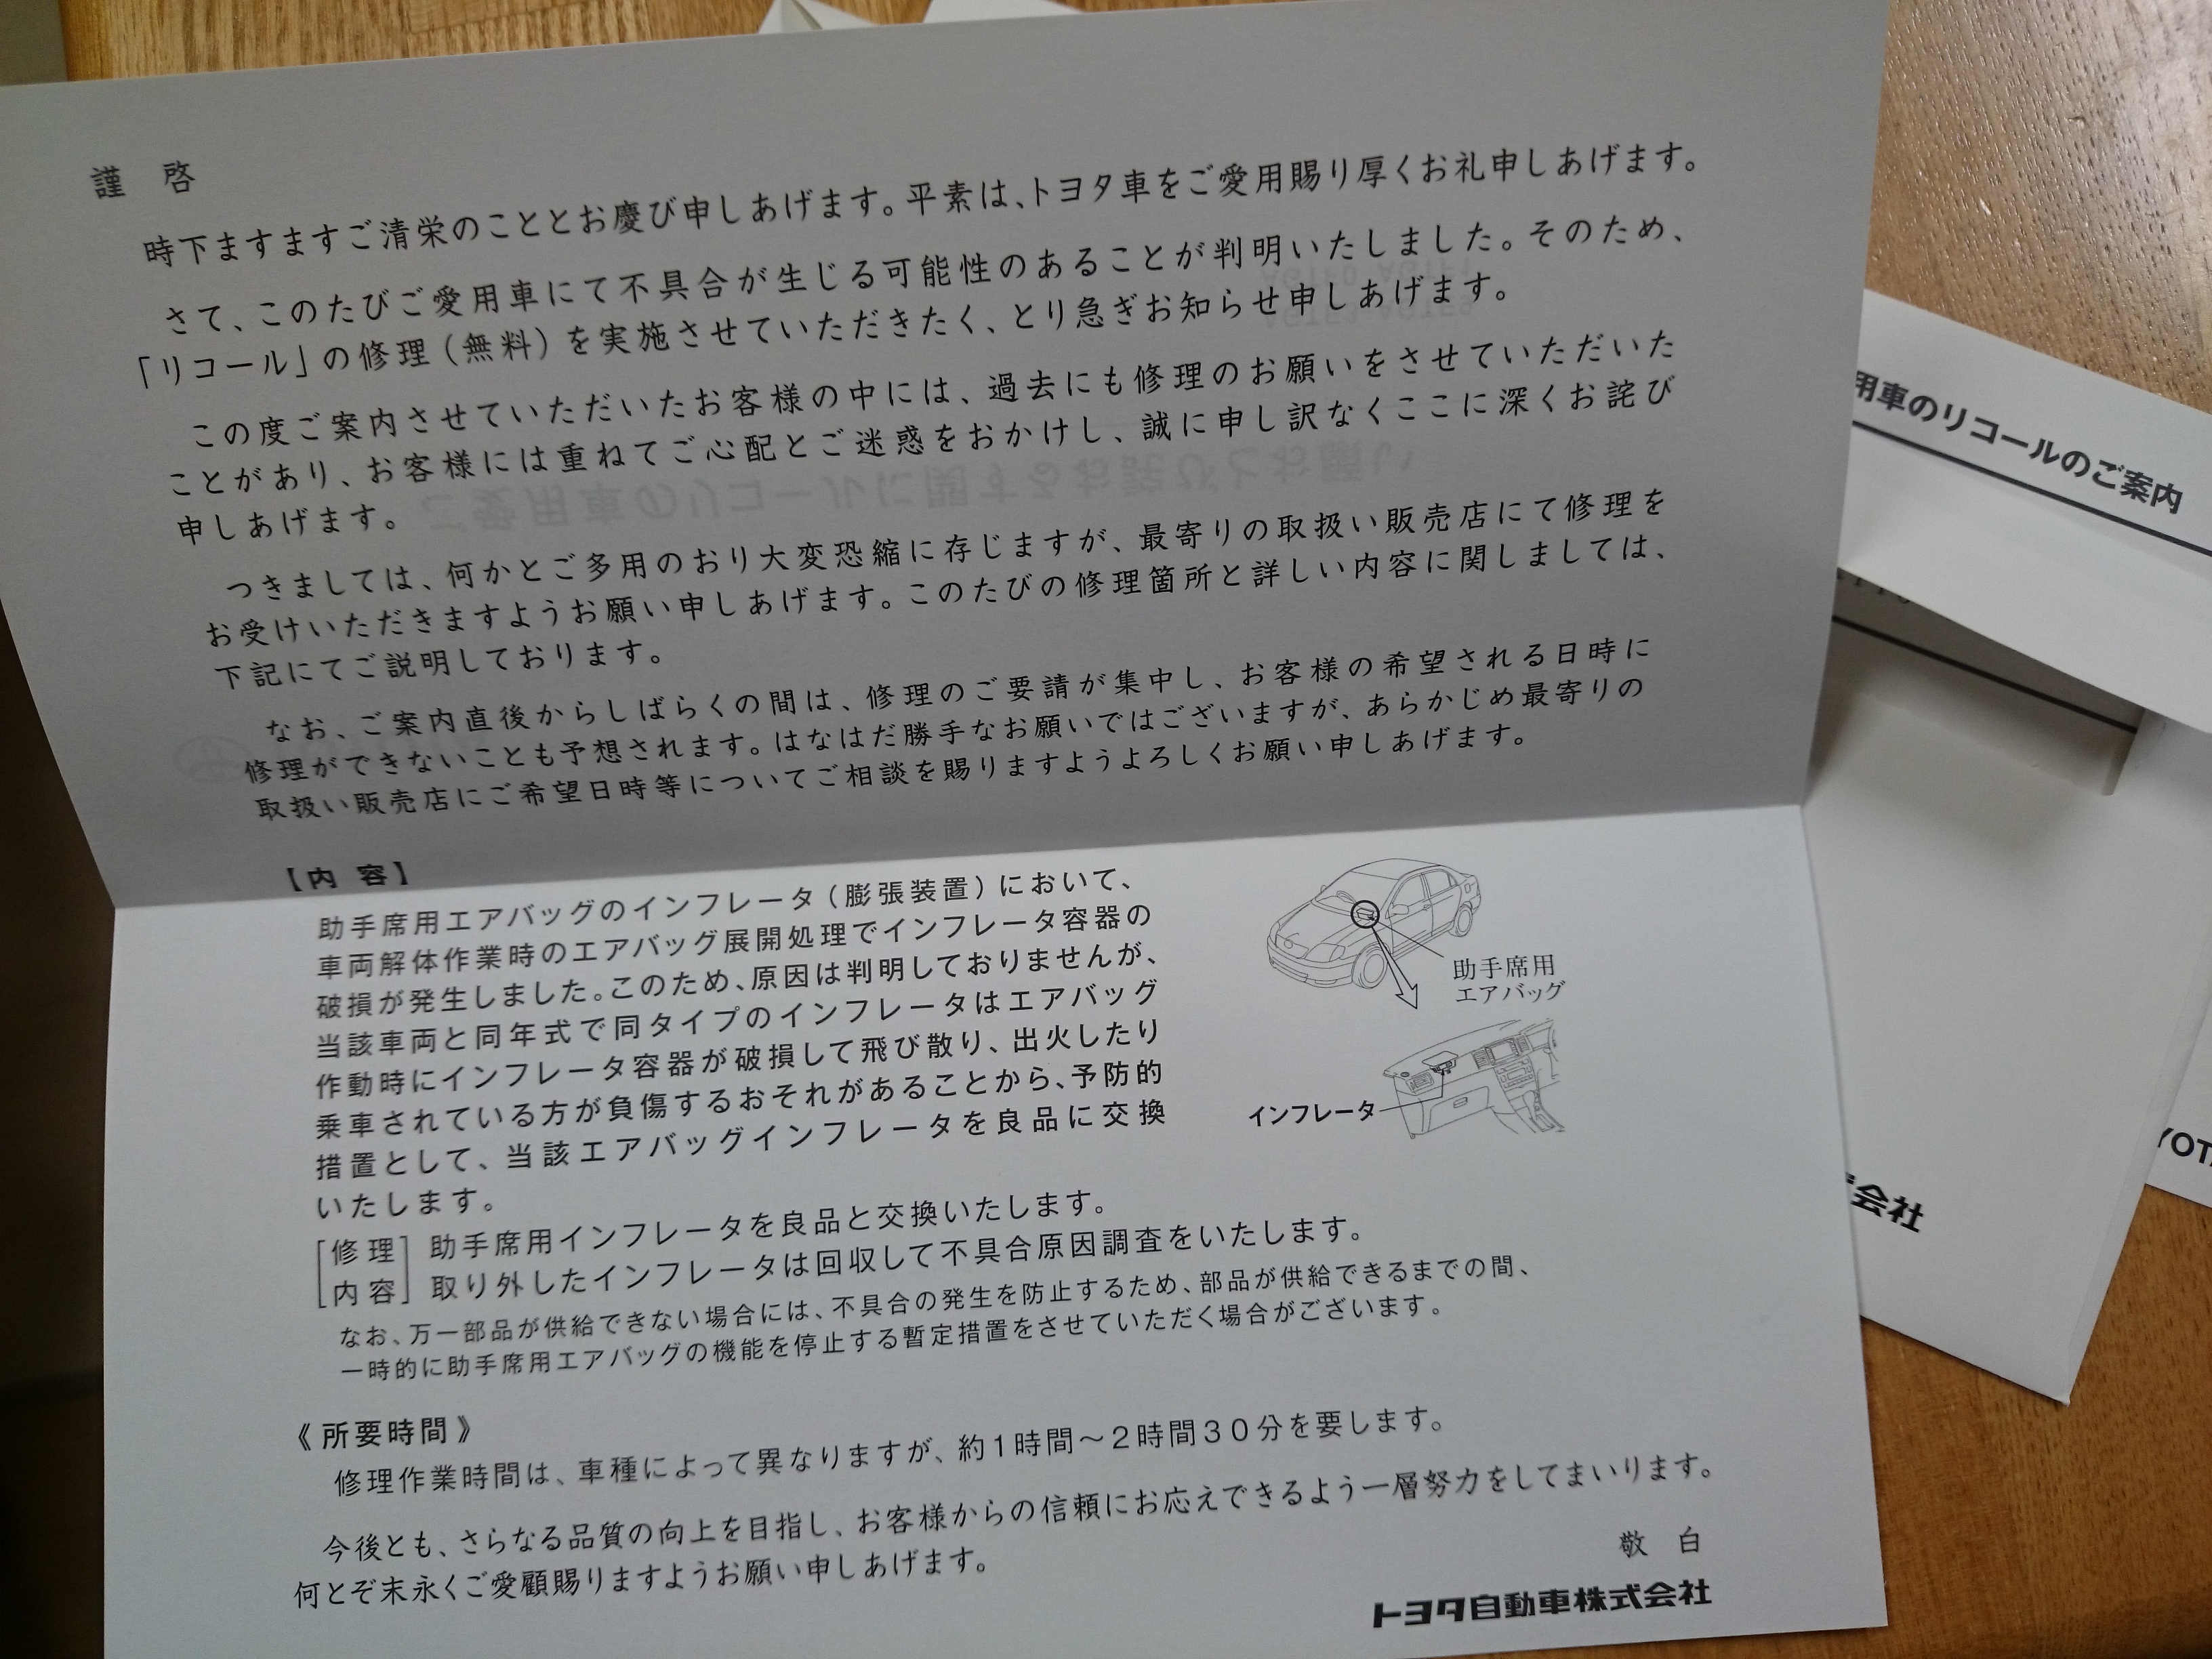 謹 啓
時下ますますご清栄のこととお慶び申しあげます。平素は、トヨタ車をご愛用賜り厚くお礼申しあげます。
さて、このたびご愛用車にて不具合が生じる可能性のあることが判明いたしました。そのため、
「リコール」の修理(無料)を実施させていただきたく、とり急ぎお知らせ申しあげます。
この度ご案内させていただいたお客様の中には、過去にも修理のお願いをさせていただいた
ことがあり、お客様には重ねてご心配とご迷惑をおかけし、誠に申し訳なくここに深くお詫び
申しあげます。
つきましては、何かとご多用のおり大変恐縮に存じますが、最寄りの取扱い販売店にて修理を
お受けいただきますようお願い申しあげます。このたびの修理箇所と詳しい内容に関しましては、
下記にてご説明しております。
なお、ご案内直後からしばらくの間は、修理のご要請が集中し、お客様の希望される日時に
修理ができないことも予想されます。はなはだ勝手なお願いではございますが、あらかじめ最寄りの
取扱い販売店にご希望日時等についてご相談を賜りますようよろしくお願い申しあげます。
【内 容】
助手席用エアバッグのインフレータ(膨張装置)において、
車両解体作業時のエアバッグ展開処理でインフレータ容器の
破損が発生しました。このため、原因は判明しておりませんが、
当該車両と同年式で同タイプのインフレータはエアバッグ
作動時にインフレータ容器が破損して飛び散り、出火したり
乗車されている方が負傷するおそれがあることから、予防的
措置として、当該エアバッグインフレータを良品に交換
いたします。
助手席用
エアバッグ
インフレータ
[修理 助手席用インフレータを良品と交換いたします。
内容] 取り外したインフレータは回収して不具合原因調査をいたします。
なお、万一部品が供給できない場合には、不具合の発生を防止するため、部品が供給できるまでの間、
一時的に助手席用エアバッグの機能を停止する暫定措置をさせていただく場合がございます。
《所要時間》
修理作業時間は、車種によって異なりますが、約1時間〜2時間30分を要します。
今後とも、さらなる品質の向上を目指し、お客様からの信頼にお応えできるよう一層努力をしてまいります。
何とぞ末永くご愛顧賜りますようお願い申しあげます。
敬 白
トヨタ自動車株式会社
用車のリコールのご案内
会社
YOT